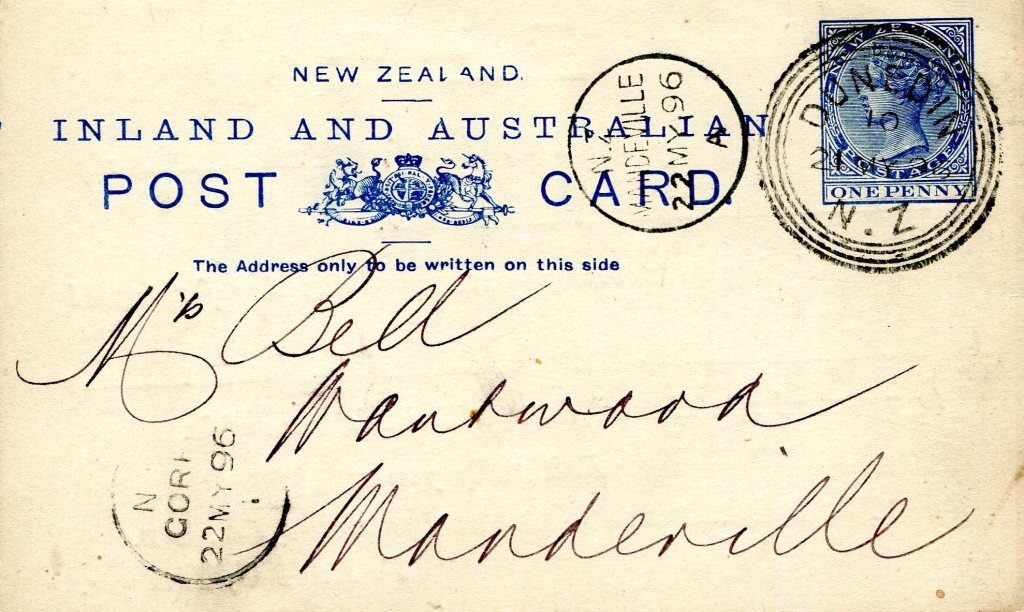 NEW ZEALAND.
INLAND AND AUSTRALIAN
POST CARD.
The Address only to be written on this side
NEW ZEALAND
POSTAGE
ONE PENNY
DUNEDIN
10
21 MY 96
N.Z
N.Z
MANDEVILLE
22 MY 96
A
Mrs Bell
Wantwood
Mandeville
N
GORE
22 MY 96